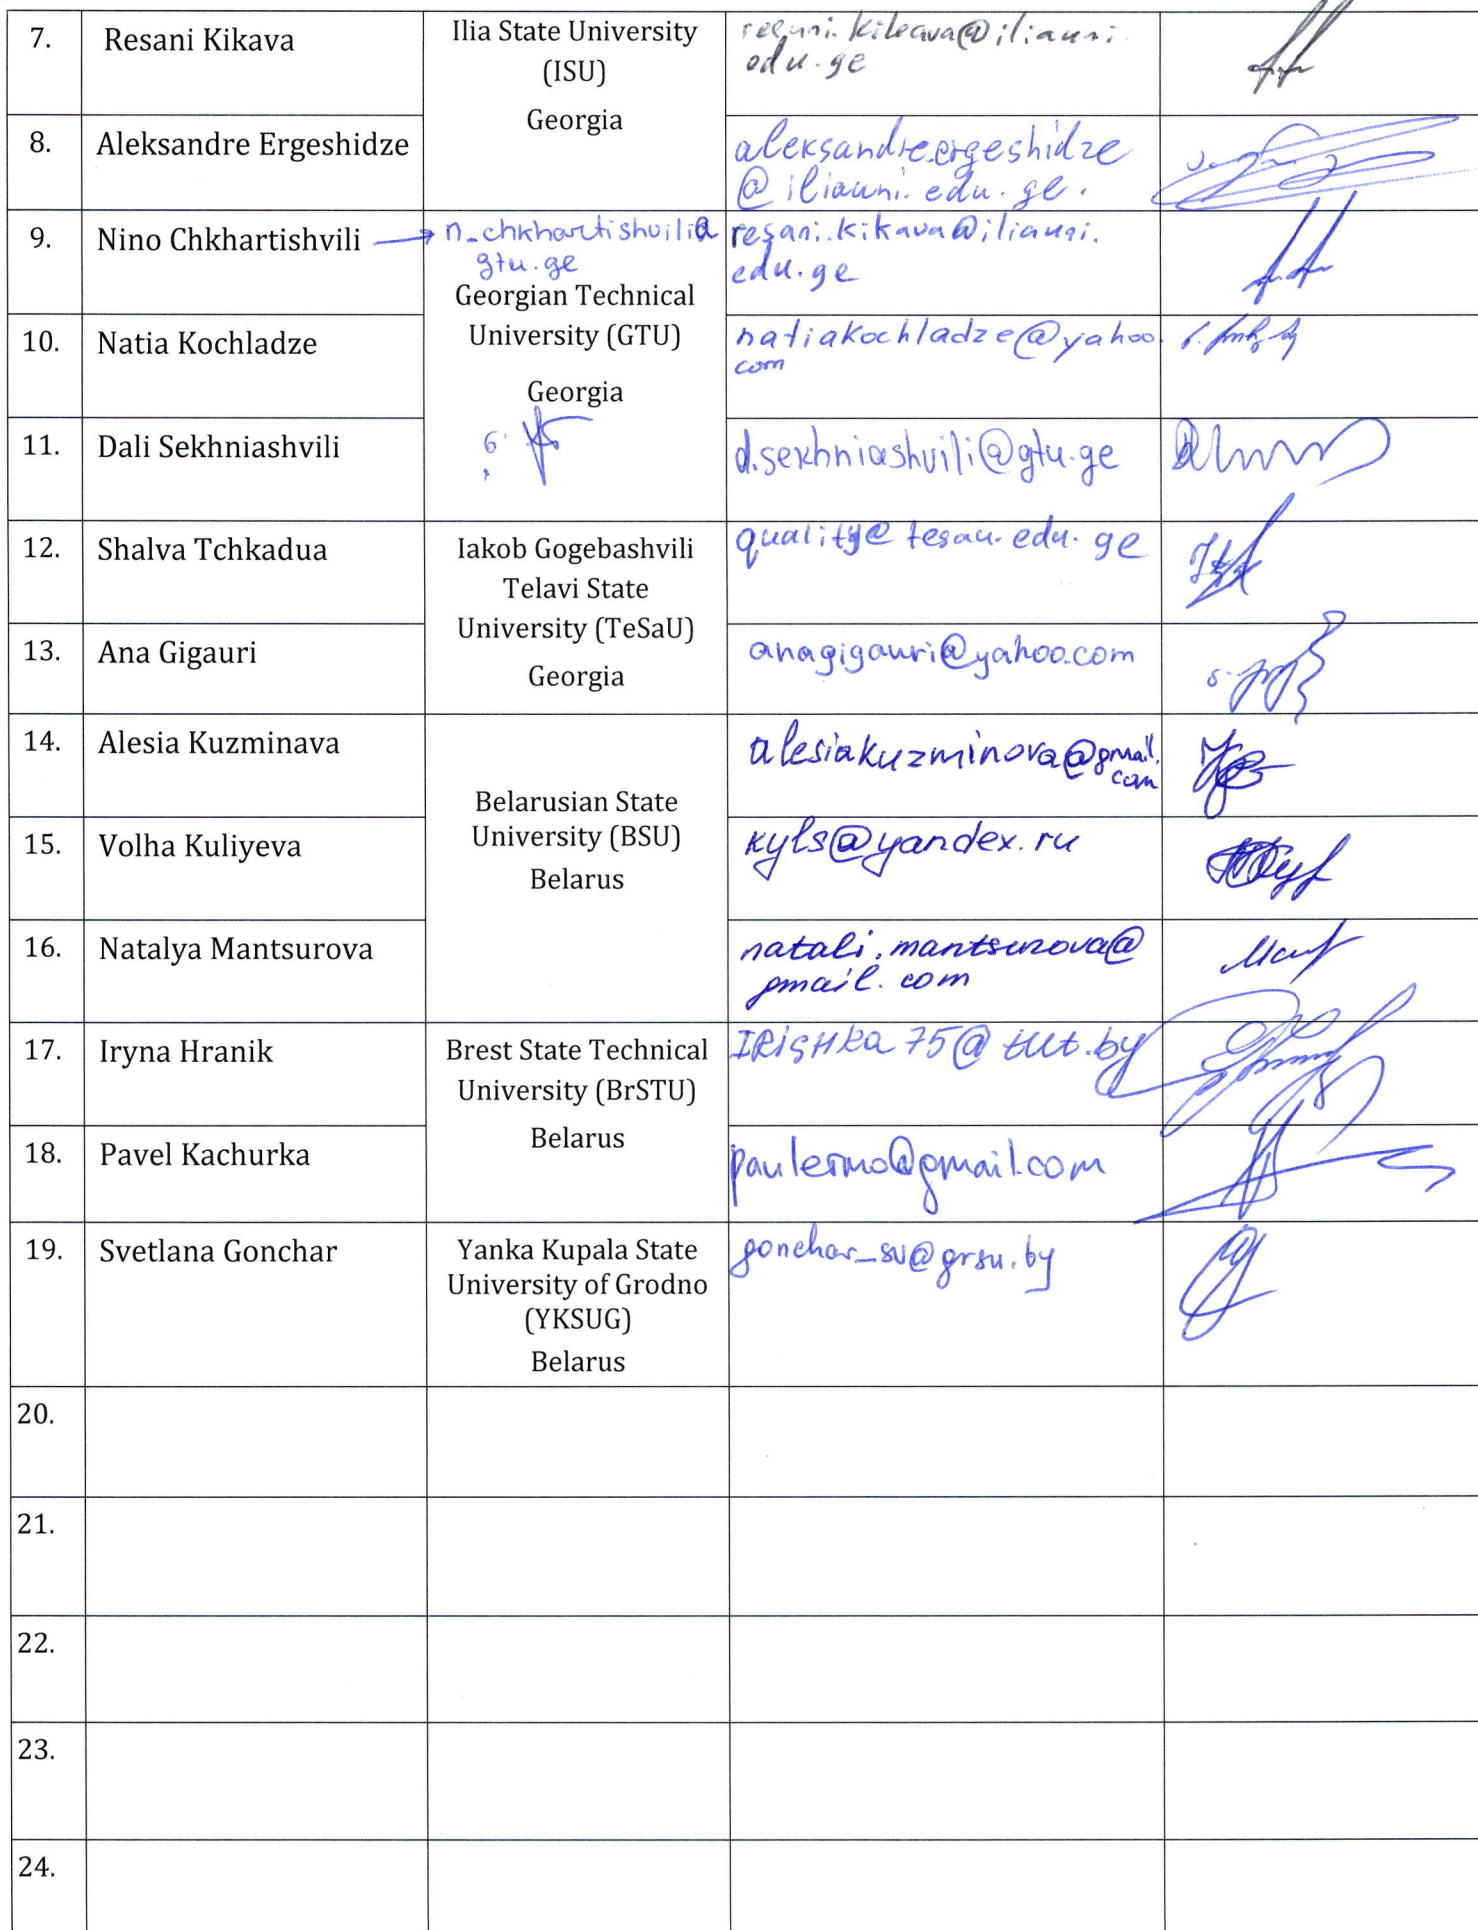 7.
Resani Kikava
Ilia State University
(ISU)
Georgia
edu.ge
8.
Aleksandre Ergeshidze
aleksandre.ergeshidze
@iliauni.edu.ge.
9.
Nino Chkhartishvili
n_chkhartishvili@
gtu.ge
resani.kikava@iliauni.
edu.ge
Georgian Technical
University (GTU)
Georgia
10.
Natia Kochladze
natiakochladze@yahoo.
com
11.
Dali Sekhniashvili
d.sekhniashvili@gtu.ge
12.
Shalva Tchkadua
Iakob Gogebashvili
Telavi State
University (TeSaU)
Georgia
quality@tesau.edu.ge
13.
Ana Gigauri
anagigauri@yahoo.com
14.
Alesia Kuzminava
Belarusian State
University (BSU)
Belarus
alesiakuzminova@gmail.
com
15.
Volha Kuliyeva
kyls@yandex.ru
16.
Natalya Mantsurova
natali.mantsurova@
gmail.com
17.
Iryna Hranik
Brest State Technical
University (BrSTU)
Belarus
IRISHka75@tut.by
18.
Pavel Kachurka
paulermo@gmail.com
19.
Svetlana Gonchar
Yanka Kupala State
University of Grodno
(YKSUG)
Belarus
gonchar_sv@grsu.by
20.
21.
22.
23.
24.